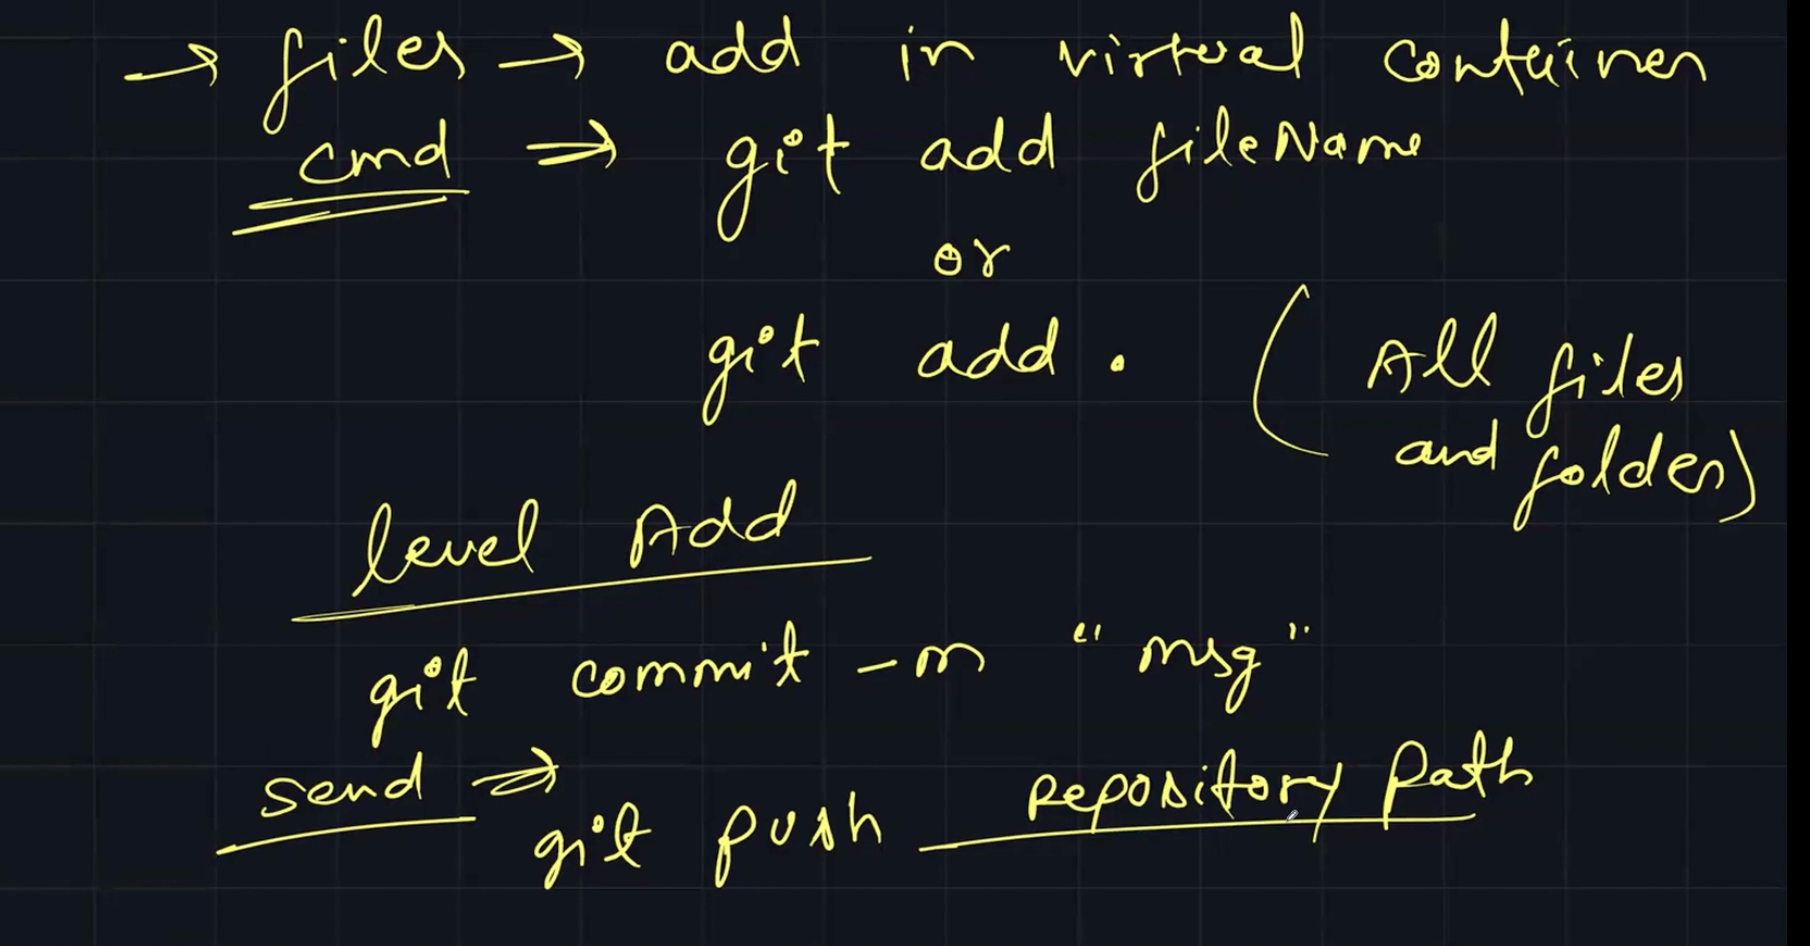 → files → add in virtual container
cmd ⇒ git add fileName
or
git add . (All files
and folders)
level Add
git commit -m "msg"
send ⇒
git push repository path